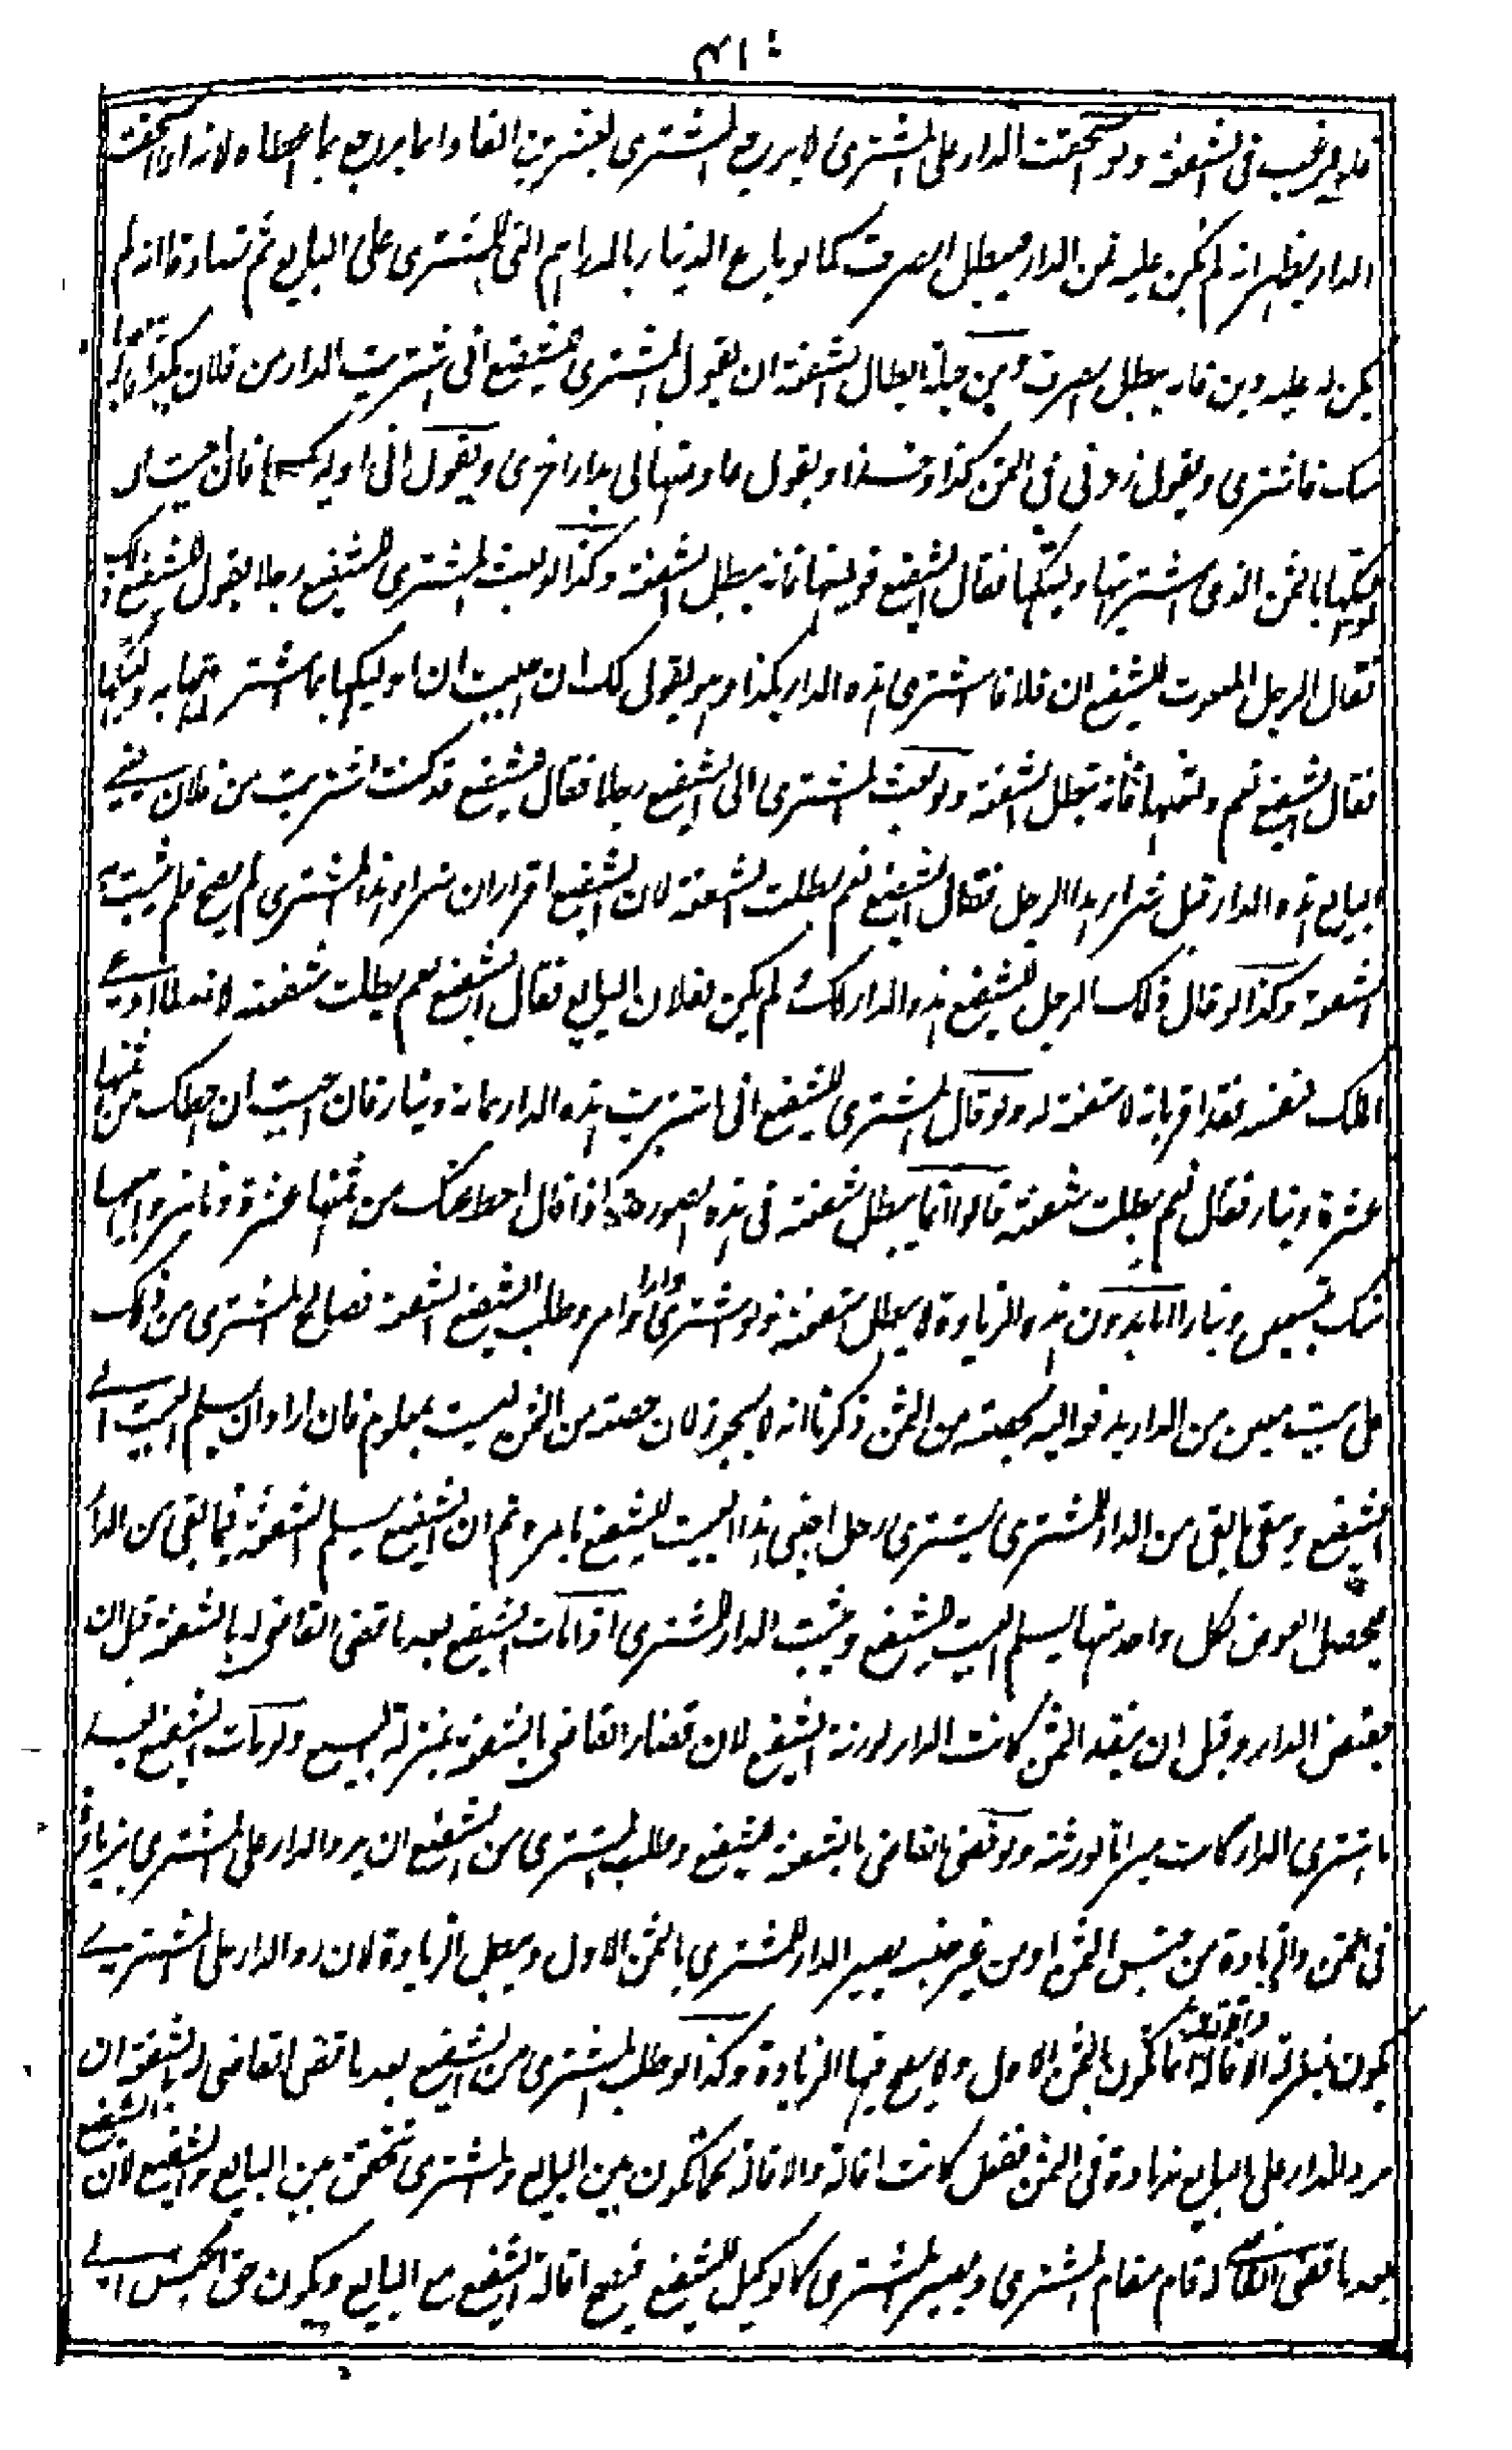 فلا يرغب في الشفعة ولو استحقت الدار على المشتري لا يرجع المشتري بعشرين الفا وانما يرجع بما اعطاه لانه اذا استحقت
الدار يظهر انه لم يكن عليه ثمن الدار فيبطل الصرف كما لو باع الدينار بالدراهم التي للمشتري على البايع ثم تصادقا انه لم
يكن له عليه دين فانه يبطل الصرف ومن حيلة ابطال الشفعة ان يقول المشتري للشفيع اني اشتريت الدار من فلان بكذا
فاشترى ويقول زدني في الثمن كذا وكذا ويقول هاونتها لي بدار اخرى ويقول اني اوليكها فان احببت ان
اوليكها بالثمن الذي اشتريتها وليتكها فقال الشفيع قد وليتها فانه يبطل الشفعة وكذا لو بعث المشتري للشفيع رجلا يقول للشفيع ذلك
فقال الرجل المبعوث للشفيع ان فلانا اشترى هذه الدار بكذا وهو يقول لك ان احببت ان اوليكها بما اشتريتها به وليتكها
فقال الشفيع نعم ولنيها فانه تبطل الشفعة ولو بعث المشتري الى الشفيع رجلا فقال للشفيع قد كنت اشتريت من فلان يعني
البايع هذه الدار قبل شراء هذا الرجل فقال الشفيع نعم بطلت الشفعة لان الشفيع اقر ان شراء هذا المشتري لم يصح فلم يثبت له
الشفعة وكذا لو قال ذلك الرجل للشفيع هذه الدار لك لم يكن لفلان البايع فقال الشفيع نعم بطلت شفعته لانه لما ادعى
الملك لنفسه فقد اقر بانه لا شفعة له ولو قال المشتري للشفيع اني اشتريت هذه الدار بمائة دينار فان احببت ان احطك من ثمنها
عشرة دينار فقال نعم بطلت شفعته قالوا انما يبطل شفعته في هذه الصورة اذا قال احط عنك من ثمنها عشرة دنانير وابيعها
منك بتسعين دينارا اما بدون هذه الزيادة لا يبطل شفعته ولو اشترى دارا وطلب الشفيع الشفعة فصالح المشتري من ذلك
على بيت معين من الدار يدفعه اليه بحصته من الثمن ذكرنا انه لا يجوز لان حصته من الثمن ليست بمعلوم فان اراد ان يسلم البيت الى
الشفيع ويبقى ما بقي من الدار للمشتري يشتري رجل اجنبي هذا البيت للشفيع بامره ثم ان الشفيع يسلم الشفعة فيما بقي من الدار
فيحصل العوض لكل واحد منهما ليسلم البيت للشفيع ويثبت الدار للمشتري اذا مات الشفيع بعد ما قضى القاضي له بالشفعة قبل ان
يقبض الدار وقبل ان ينقد الثمن كانت الدار لورثة الشفيع لان قضاء القاضي بالشفعة بمنزلة البيع ولو مات الشفيع بعد
ما اشترى الدار كانت ميراثا لورثته ولو قضى القاضي بالشفعة للشفيع وطلب المشتري من الشفيع ان يرد الدار على المشتري بزيادة
في الثمن والزيادة من جنس الثمن او من غير جنسه يصير الدار للمشتري بالثمن الاول ويبطل الزيادة لان رد الدار على المشتري
يكون بمنزلة الاقالة والاقالة انما تكون بالثمن الاول ولا يصح فيها الزيادة وكذا لو طلب المشتري من الشفيع بعد ما قضى القاضي له بالشفعة ان
يرد الدار على البايع بزيادة في الثمن ففعل كانت اقالة والاقالة كما تكون بين البايع والمشتري تتحقق بين البايع والشفيع لان الشفيع
بعد ما قضى القاضي له قام مقام المشتري ويصير المشتري كالوكيل للشفيع فيصح اقالة الشفيع مع البايع ويكون حق الحبس الى